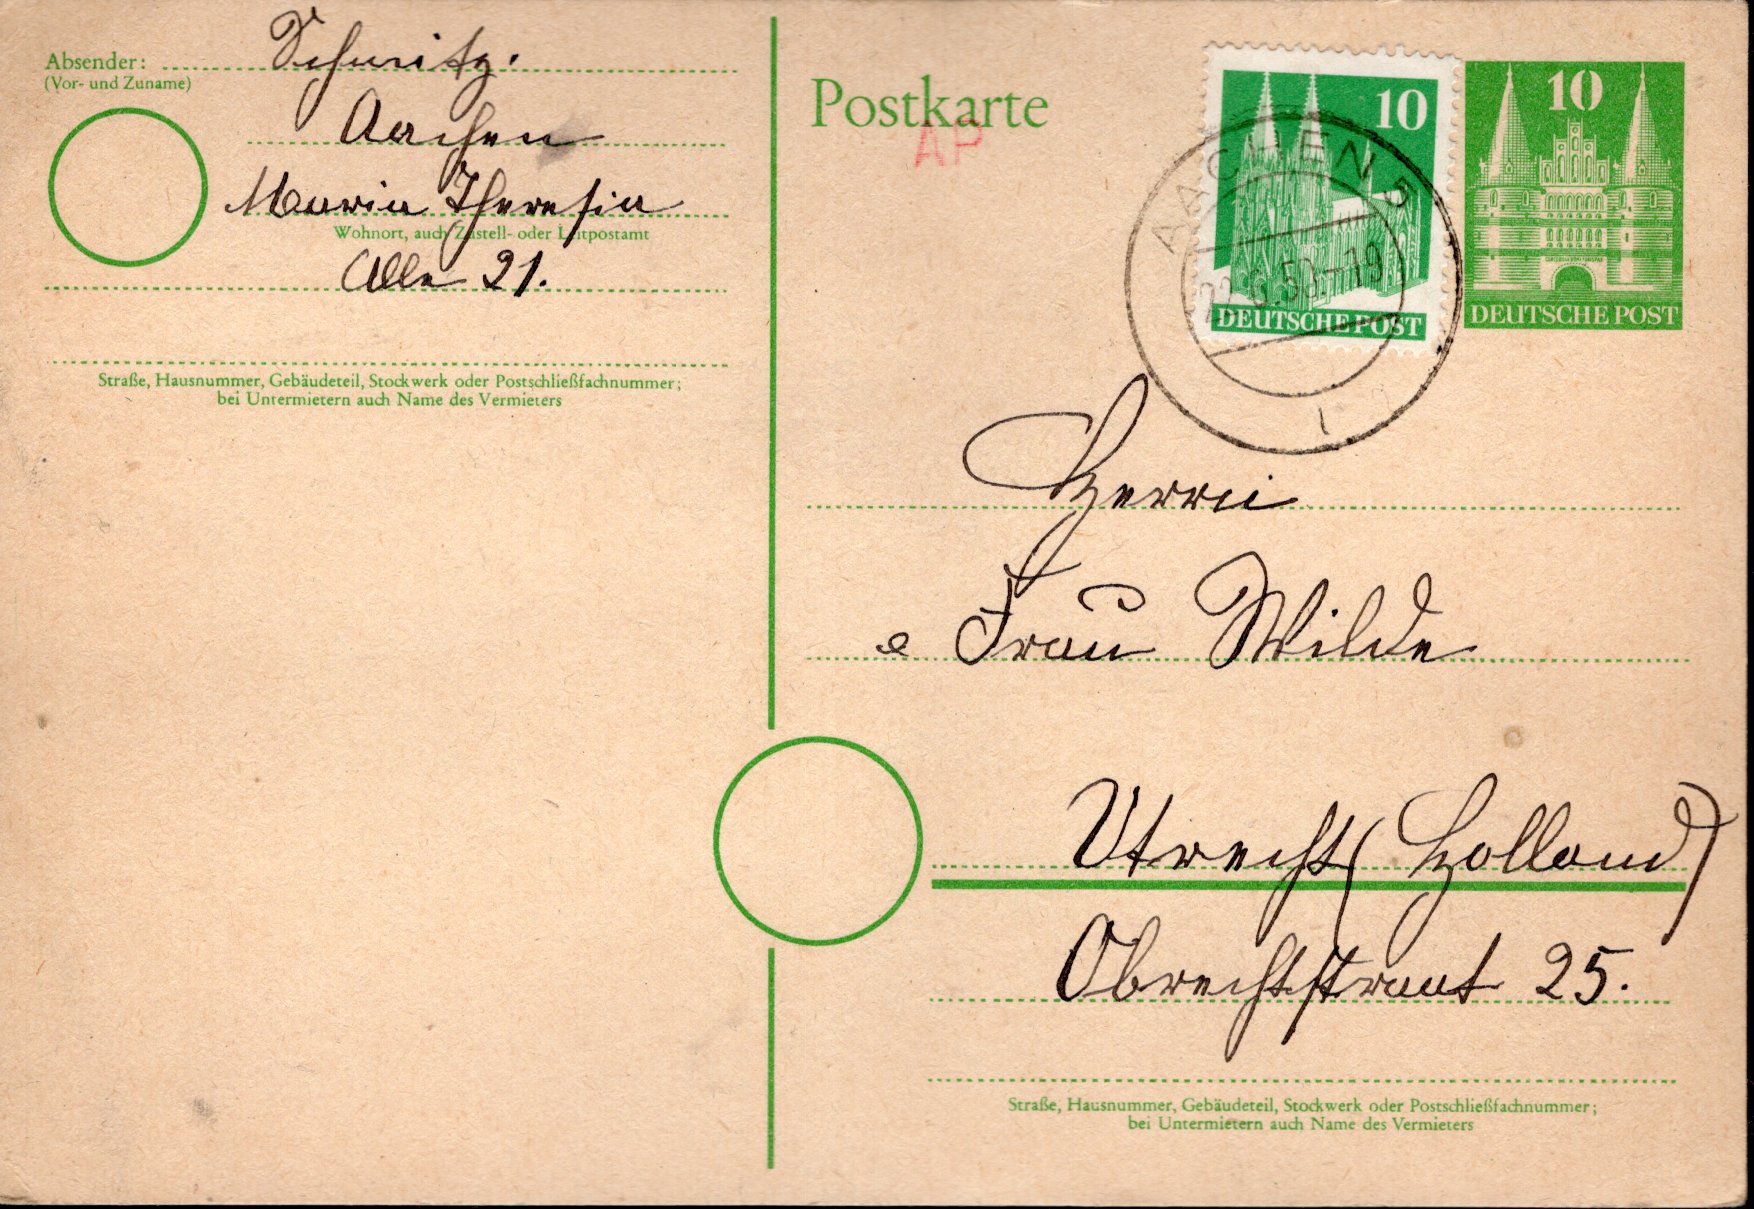 Absender: Schmitz.
(Vor- und Zuname)
Aachen
Maria Theresia
Wohnort, auch Zustell- oder Leitpostamt
Alle 21.
Straße, Hausnummer, Gebäudeteil, Stockwerk oder Postschließfachnummer;
bei Untermietern auch Name des Vermieters
Postkarte
AP
10
DEUTSCHE POST
10
DEUTSCHE POST
AACHEN 5
22.6.50.-19
Herrn
Frau Wilde
Utrecht (Holland)
Obrechtstraat 25.
Straße, Hausnummer, Gebäudeteil, Stockwerk oder Postschließfachnummer;
bei Untermietern auch Name des Vermieters